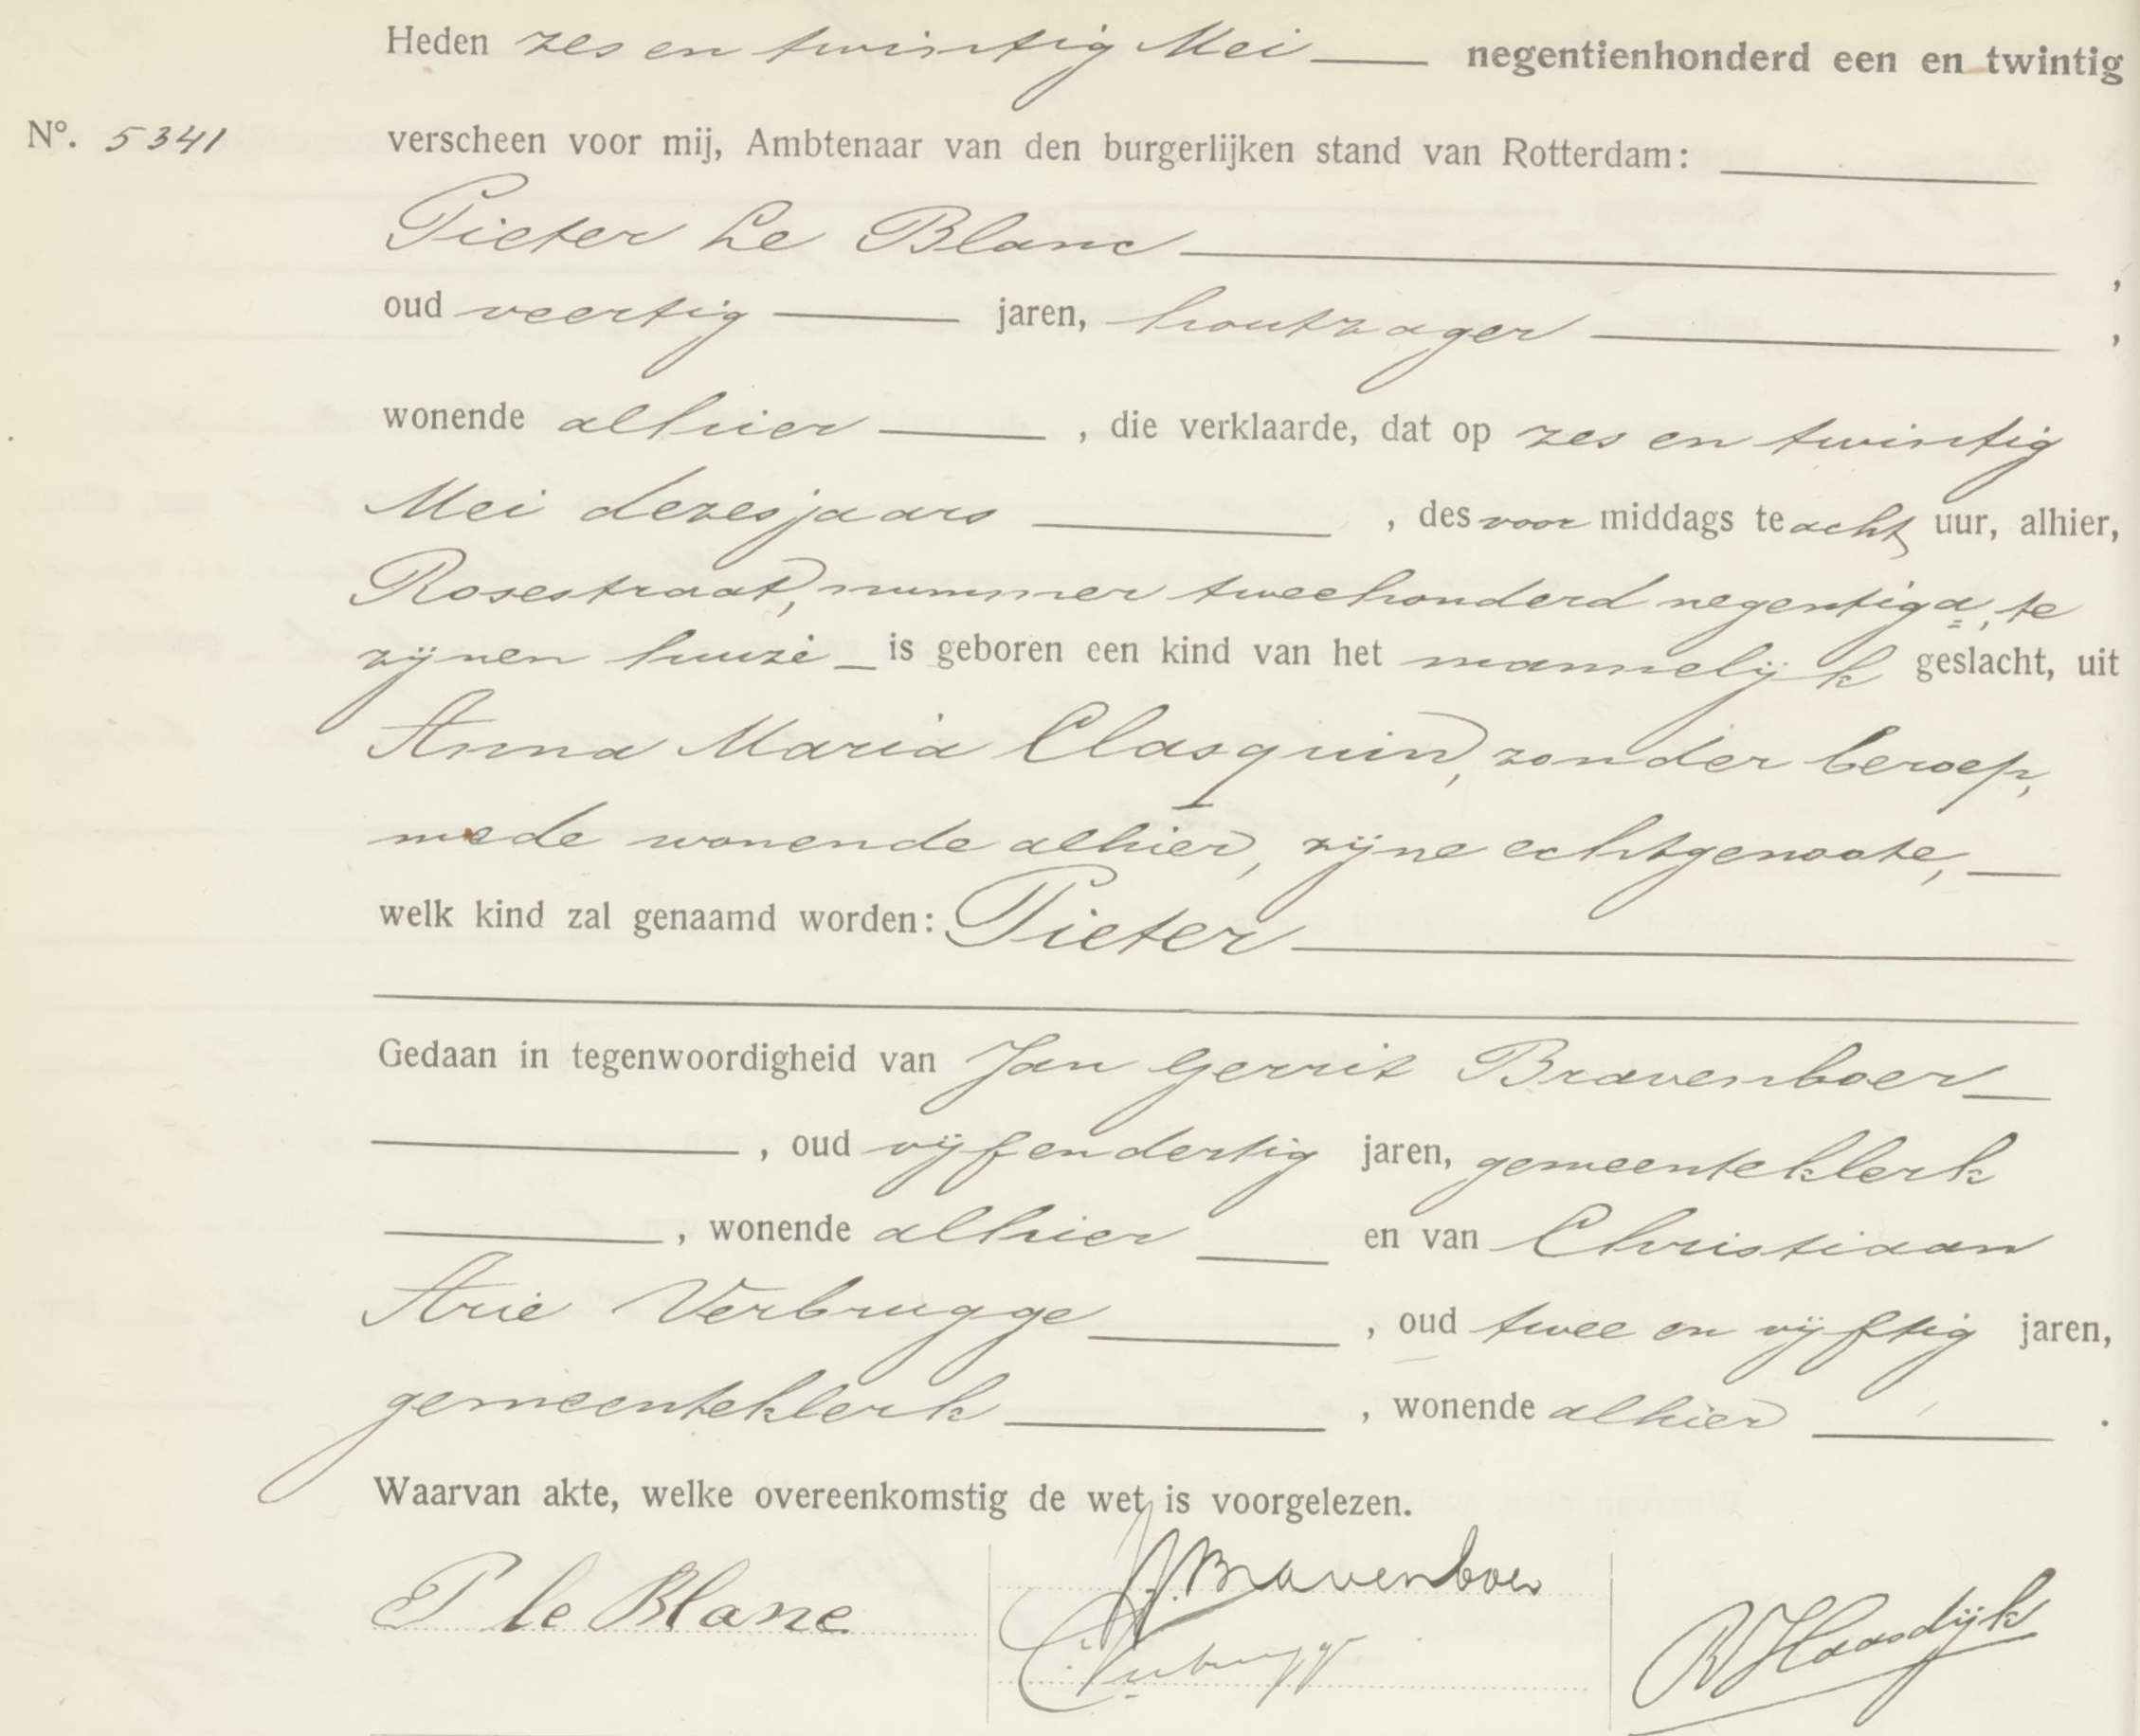 Heden zes en twintig Mei negentienhonderd een en twintig
Nº. 5341 verscheen voor mij, Ambtenaar van den burgerlijken stand van Rotterdam:
Pieter Le Blanc ,
oud veertig jaren, houtzager ,
wonende alhier , die verklaarde, dat op zes en twintig
Mei dezes jaars , des voor middags te acht uur, alhier,
Rosestraat, nummer tweehonderd negentig a, te
zijnen huize is geboren een kind van het mannelijk geslacht, uit
Anna Maria Clasquin, zonder beroep,
mede wonende alhier, zijne echtgenoote,
welk kind zal genaamd worden: Pieter
Gedaan in tegenwoordigheid van Jan Gerrit Bravenboer
, oud vijf en dertig jaren, gemeenteklerk
, wonende alhier en van Christiaan
Arie Verbrugge , oud twee en vijftig jaren,
gemeenteklerk , wonende alhier .
Waarvan akte, welke overeenkomstig de wet, is voorgelezen.
P le Blanc
JG Bravenboer
C.A. Verbrugge
Haasdijk